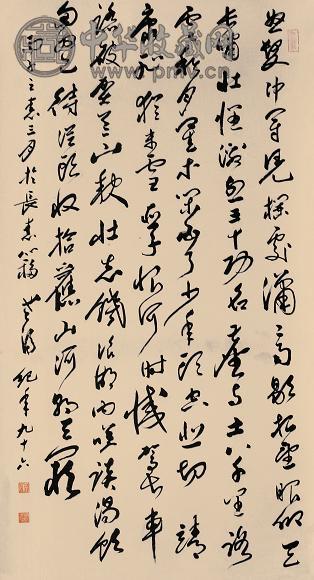 中华收藏网
www.pmv.cn
怒髮冲冠凭栏處瀟々雨歇抬望眼仰天
長嘯壮懷激烈三十功名塵与土八千里路
雲和月莫等閑白了少年頭空悲切靖
康恥猶未雪臣子恨何時滅駕長車
踏破賀蘭山缺壮志饑餐胡肉笑談渴飲
匈奴血待從頭收拾舊山河朝天闕
之春三月於長春紀年九十六